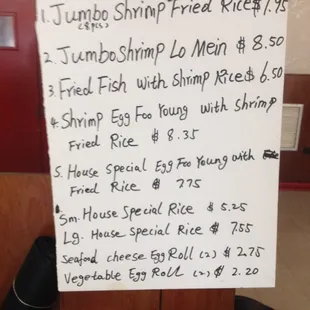 1. Jumbo Shrimp Fried Rice $ 7.95
(8 pcs)
2. Jumbo Shrimp Lo Mein $ 8.50
3. Fried Fish with Shrimp Rice $ 6.50
4. Shrimp Egg Foo Young with Shrimp
Fried Rice $ 8.35
5. House Special Egg Foo Young with
Fried Rice $ 775
Sm. House Special Rice $ 5.25
Lg. House Special Rice $ 7.55
Seafood cheese Egg Roll (2) $ 2.75
Vegetable Egg Roll (2) $ 2.20